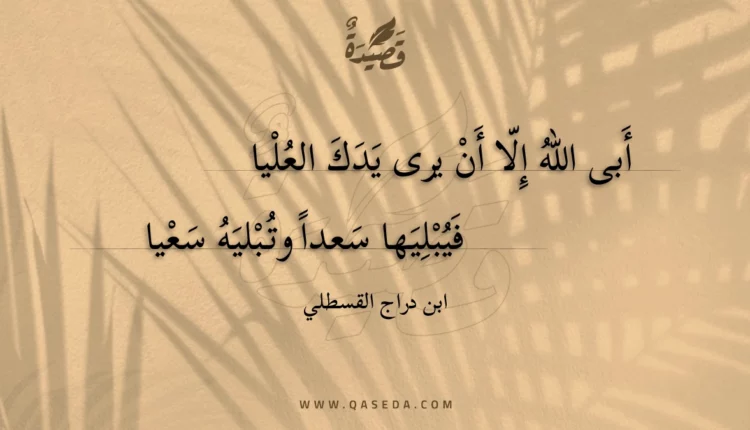 قَصِيْدَةٌ
أَبى اللهُ إِلّا أَنْ يرى يَدَكَ العُلْيا
فَيُبْلِيَها سَعداً وتُبْليَهُ سَعْيا
ابن دراج القسطلي
WWW.QASEDA.COM